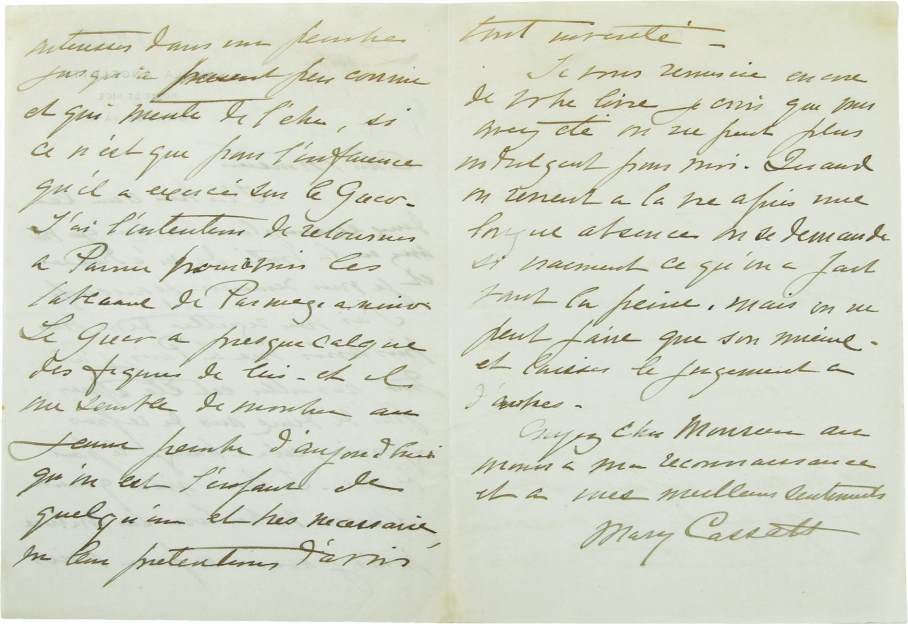 dans un peintre
jusqu'à présent peu connu
et qui mérite de l'être, si
ce n'est que pour l'influence
qu'il a exercée sur le Greco -
J'ai l'intention de retourner
a Parme pour voir les
tableaux de Parmegianino
Le Greco a presque calqué
des figures de lui - et il
me semble de montrer au
jeune peintre d'aujourd'hui
qu'on est l'enfant de
quelqu'un et tres necessaire,
vu leur pretentions d'avoir
tout inventé -
Je vous remercie encore
de votre livre je crois que vous
avez été on ne peut plus
indulgent pour moi. Quand
on revient a la vie après une
longue absence on se demande
si vraiment ce qu'on a fait
vaut la peine, mais on ne
peut faire que son mieux -
et laisser le jugement a
d'autres -
Croyez cher Monsieur au
moins a ma reconnaissance
et a mes meilleurs sentiments
Mary Cassatt